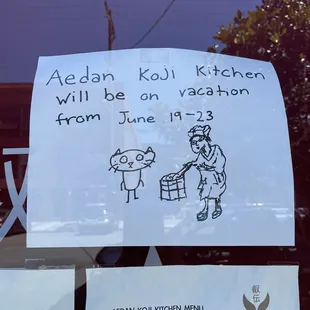 Aedan Koji Kitchen
will be on vacation
from June 19-23
叡伝
AEDAN KOJI KITCHEN MENU